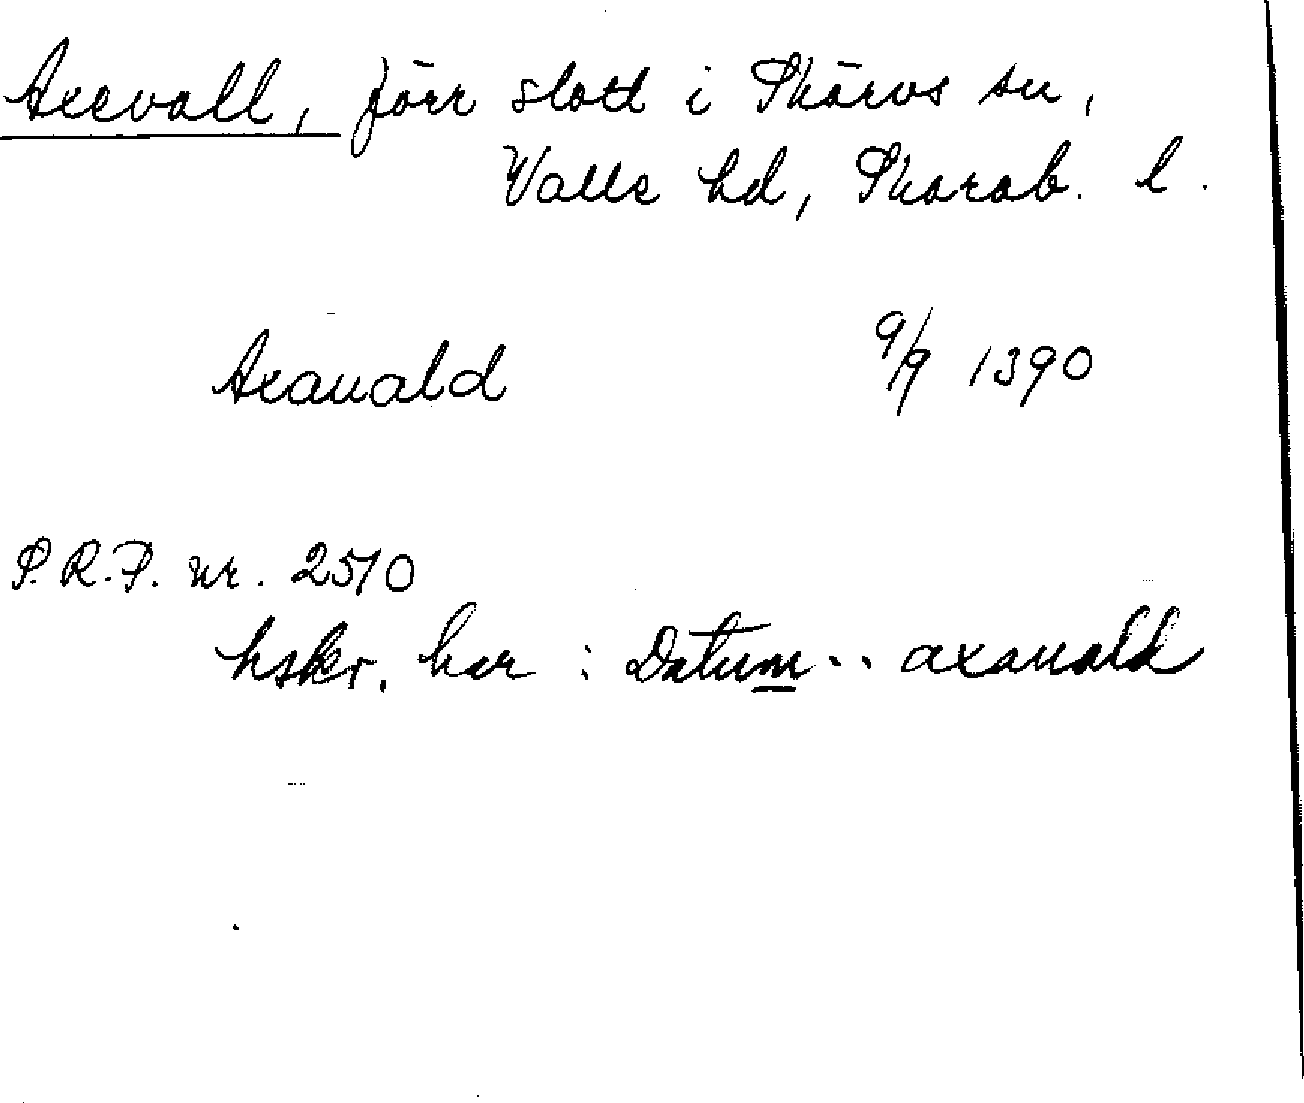 Axevall, förr slott i Skärvs sn,
Valle hd, Skarab. l.
Axauald 9/9 1390
S.R.P. nr. 2510
hskr. har : Datum .. axauald